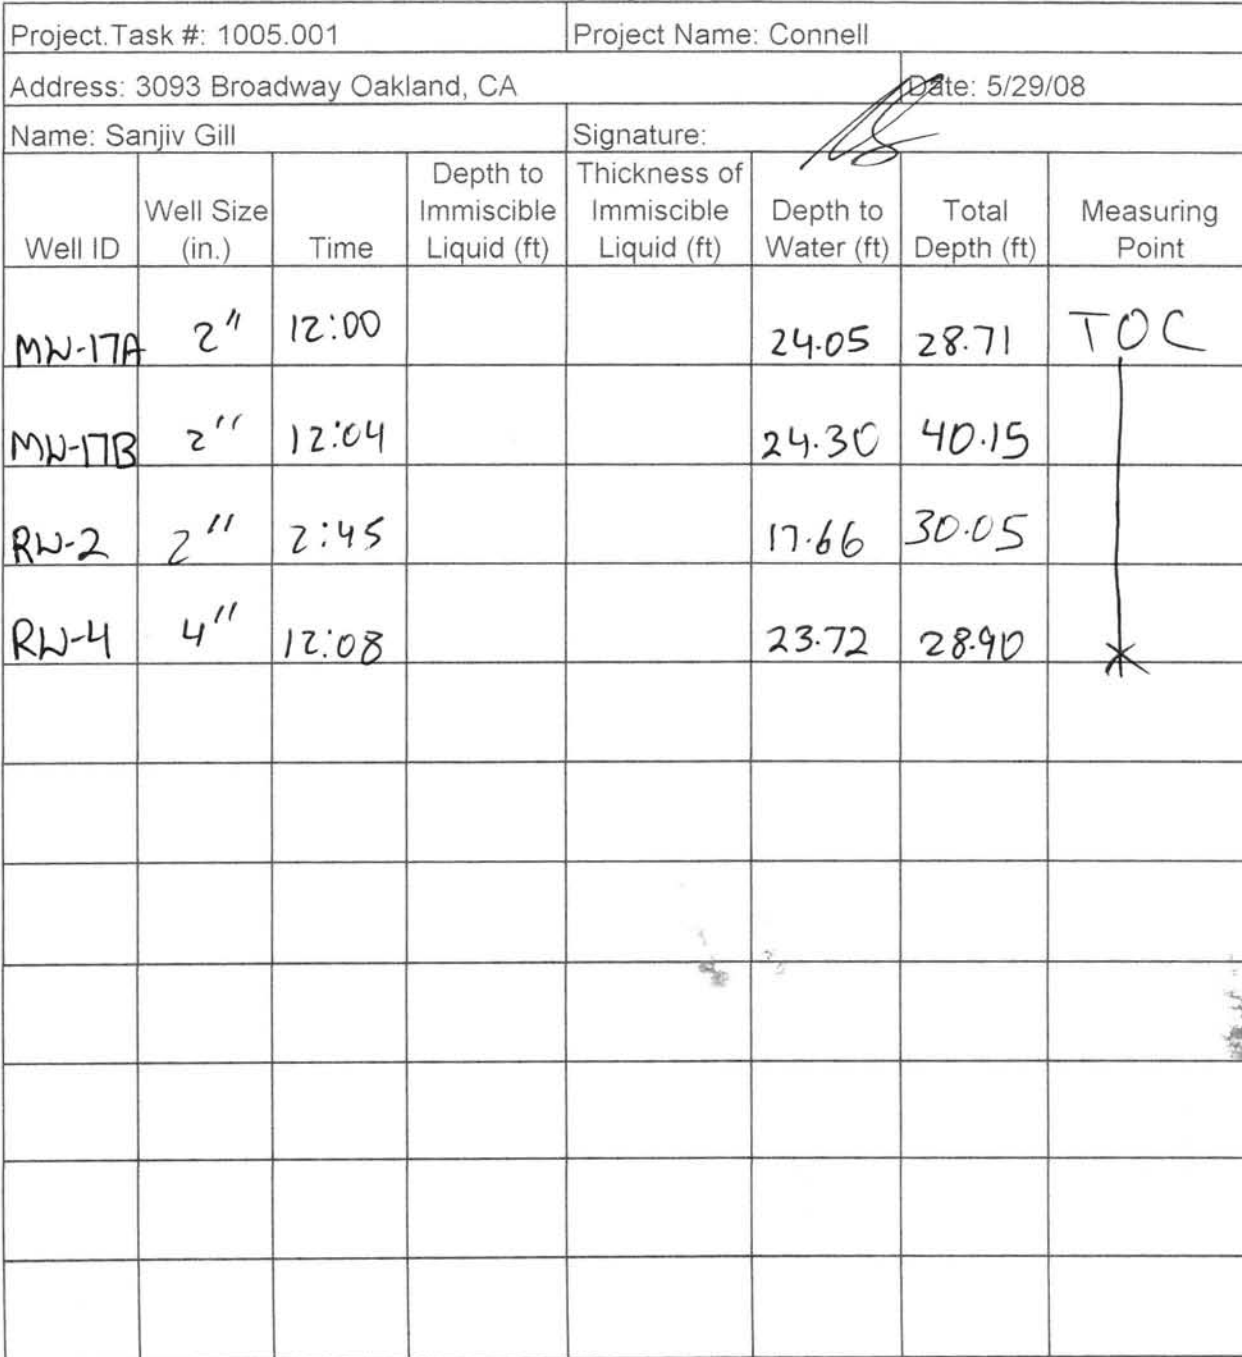 Project.Task #: 1005.001 Project Name: Connell
Address: 3093 Broadway Oakland, CA Date: 5/29/08
Name: Sanjiv Gill Signature:
Well ID Well Size (in.) Time Depth to Immiscible Liquid (ft) Thickness of Immiscible Liquid (ft) Depth to Water (ft) Total Depth (ft) Measuring Point
MW-17A 2" 12:00 24.05 28.71 TOC
MW-17B 2" 12:04 24.30 40.15
RW-2 2" 2:45 17.66 30.05
RW-4 4" 12:08 23.72 28.90